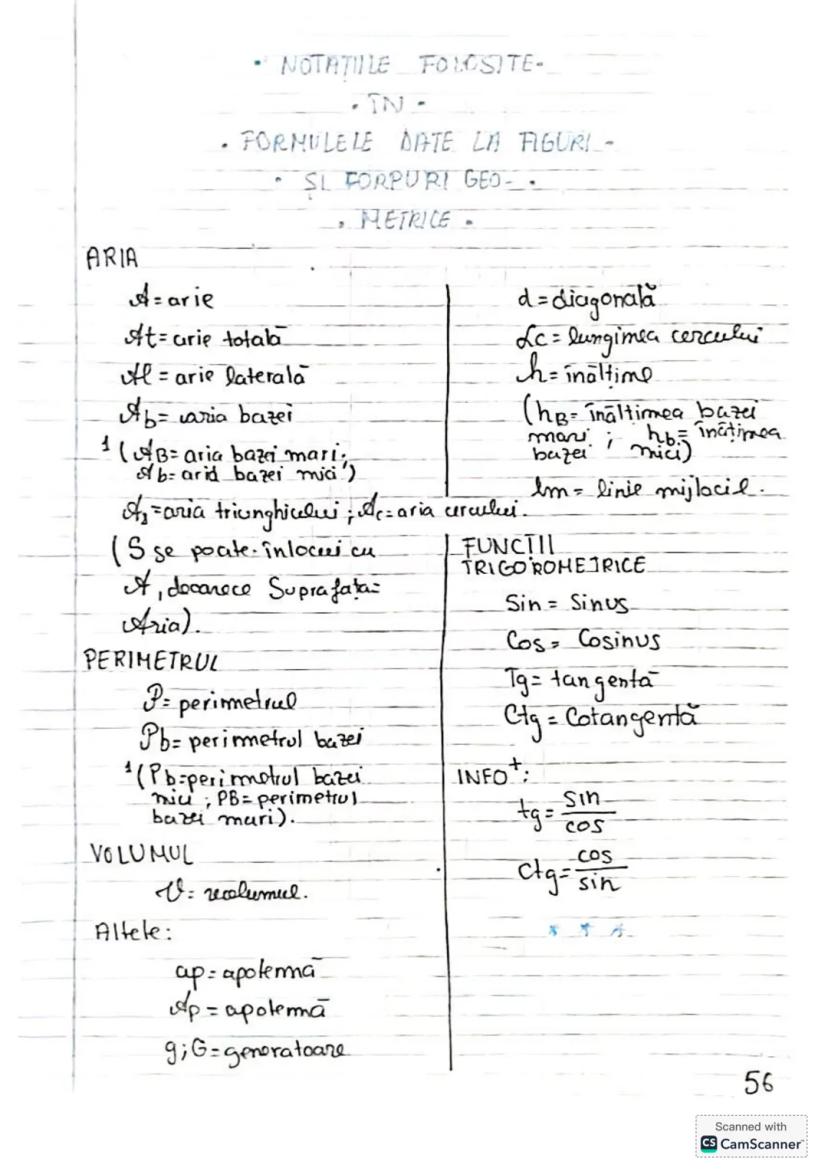 • NOTAȚIILE FOLOSITE-
• ÎN •
• FORMULELE DATE LA FIGURI -
• ȘI CORPURI GEO- •
• METRICE •
ARIA
A = arie
At = arie totală
Al = arie laterală
Ab = aria bazei
1 (AB = aria bazei mari;
Ab = aria bazei mici)
A = aria triunghiului; Ac = aria cercului.
(S se poate înlocui cu
A, deoarece Suprafața =
Aria).
PERIMETRUL
P = perimetrul
Pb = perimetrul bazei
1 (Pb = perimetrul bazei
mici; PB = perimetrul
bazei mari).
VOLUMUL
V = volumul.
Altele:
ap = apotemă
Ap = apotemă
g; G = generatoare
d = diagonală
Lc = lungimea cercului
h = înălțime
(hB = înălțimea bazei
mari; hb = înățimea
bazei mici)
lm = linie mijlocie.
FUNCȚII
TRIGONOMETRICE
Sin = Sinus
Cos = Cosinus
Tg = tangentă
Ctg = Cotangentă
INFO+:
tg = sin
cos
ctg = cos
sin
* * *
56
Scanned with
CS CamScanner